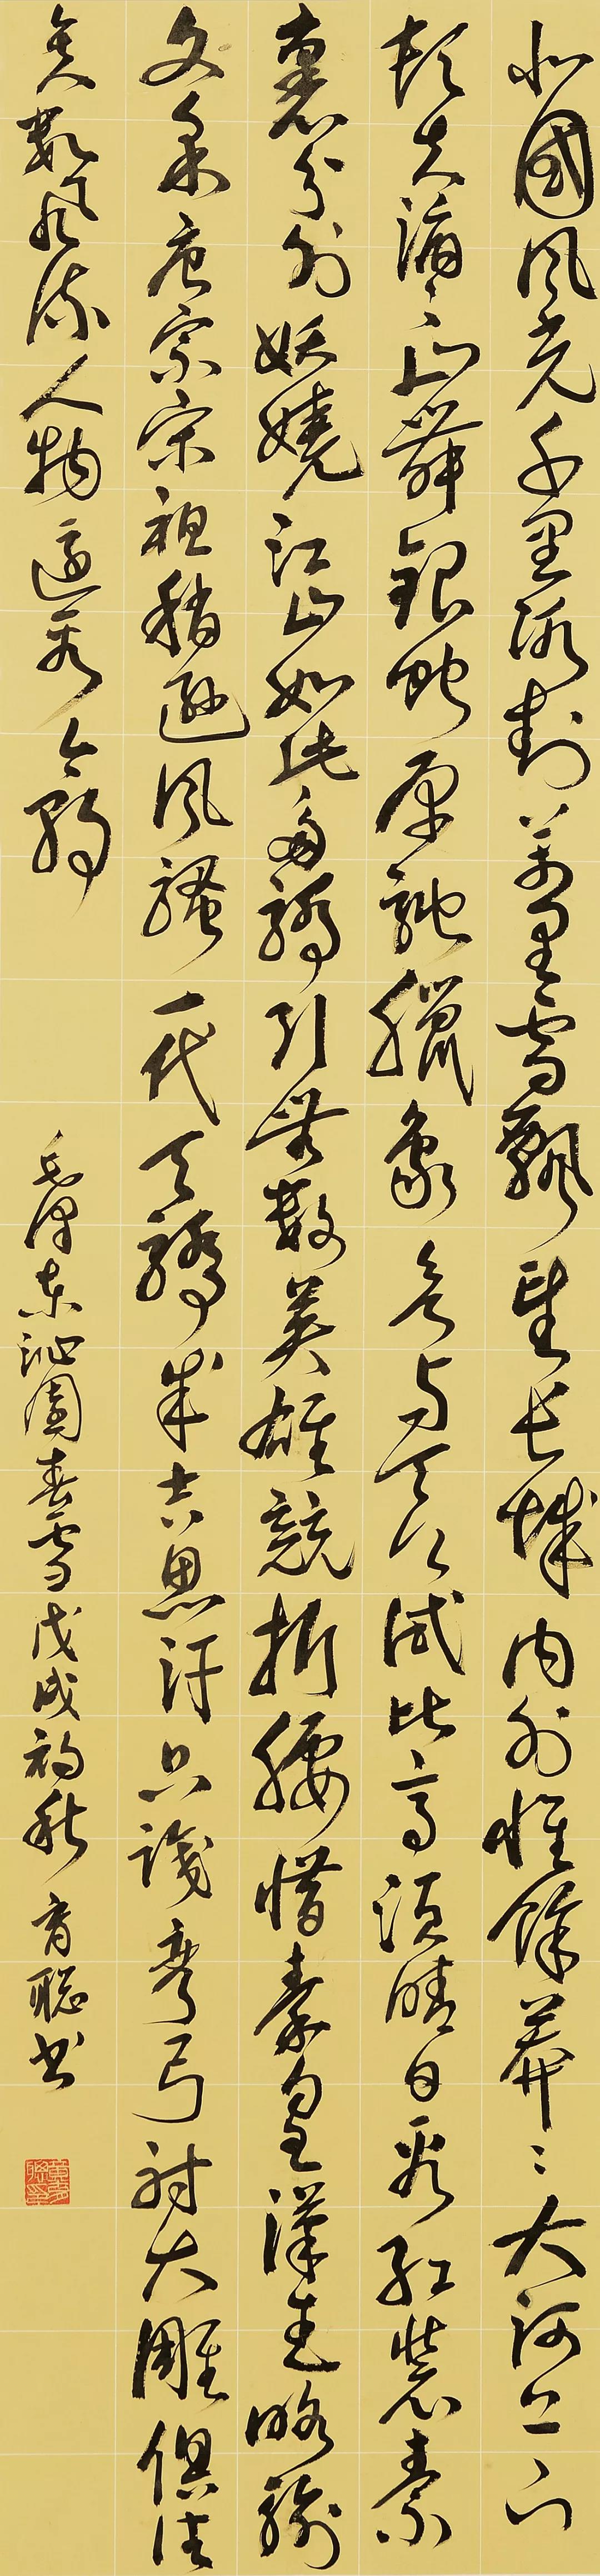 北國風光千里冰封萬里雪飄望長城內外惟餘莽〻大河上下
頓失滔〻山舞銀蛇原馳臘象欲与天公試比高須晴日看紅裝素
裹分外妖嬈江山如此多驕引無數英雄競折腰惜秦皇漢武略輸
文采唐宗宋祖稍遜風騷一代天驕成吉思汗只識彎弓射大雕俱往
矣數風流人物還看今朝
毛澤東沁園春雪戊戌初秋育聪书